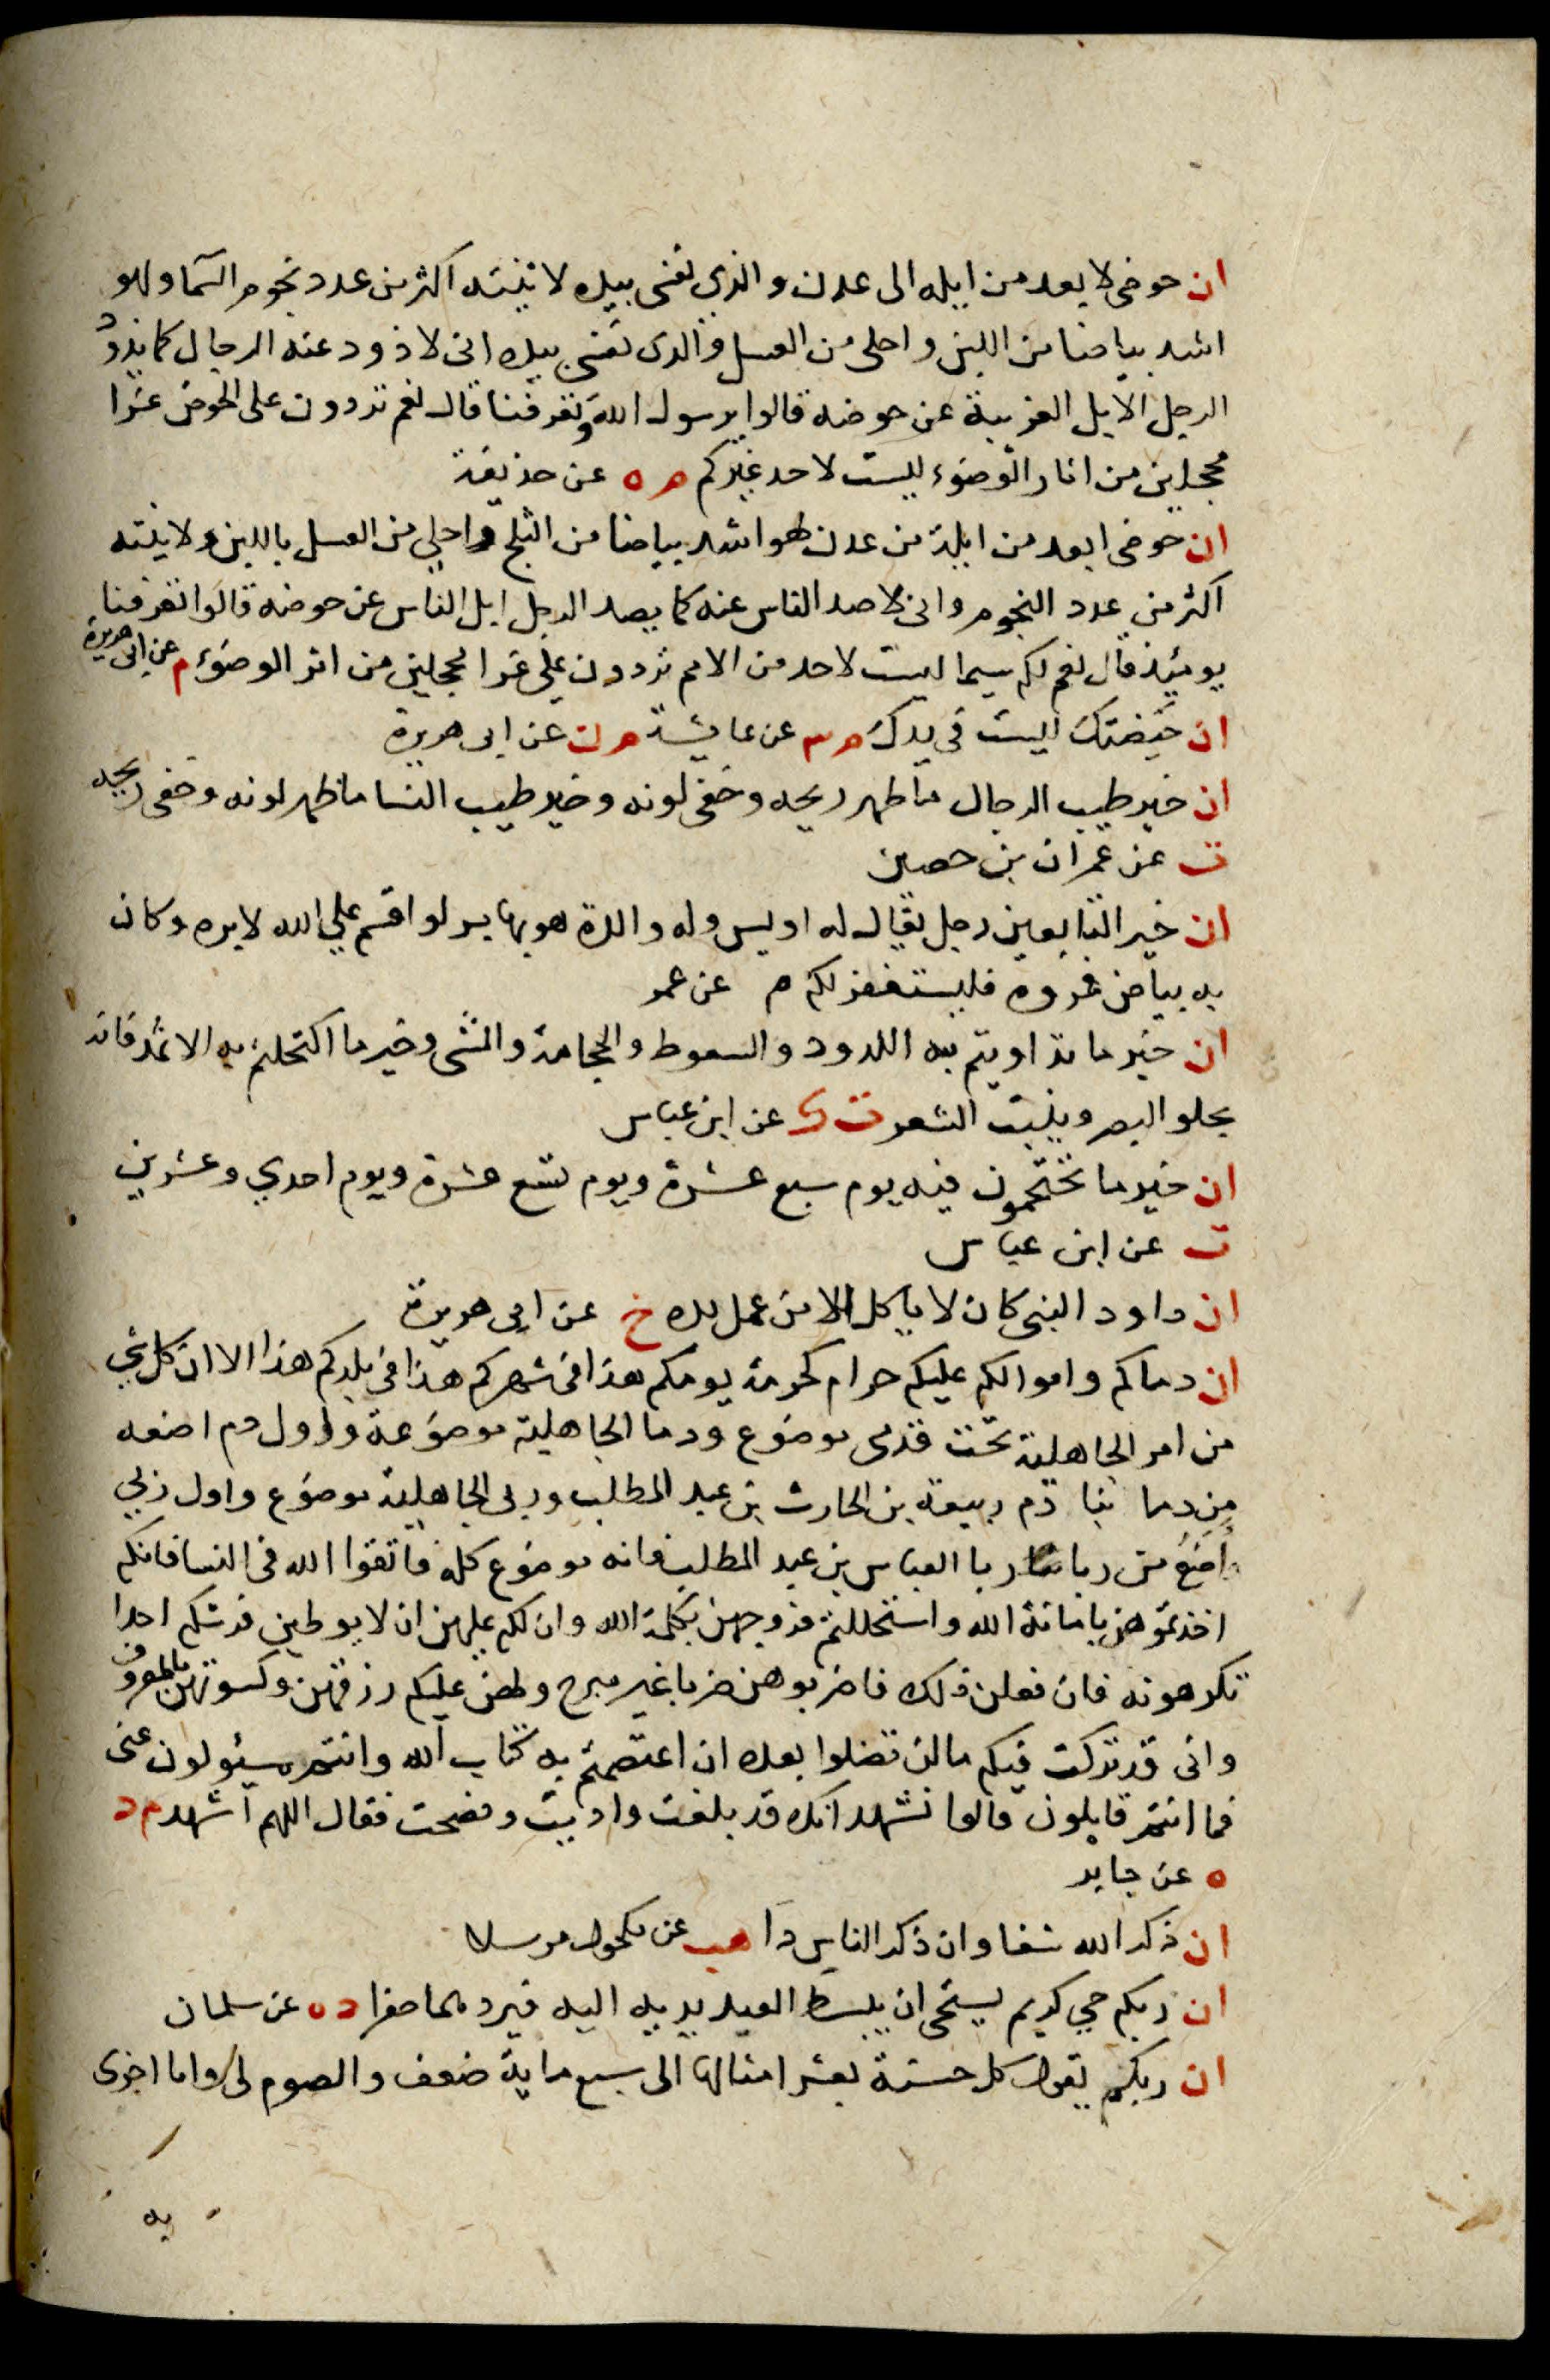 ان حوضى لا بعد من ايله الى عدن والذي نفسى بيده لانيته اكثر من عدد نجوم السما ولهو
اشد بياضا من اللبن واحلى من العسل والذى نفسى بيده انى لاذود عنه الرجال كما يذود
الرجل الابل الغريبة عن حوضه قالوا يرسول الله وتعرفنا قال نعم تردون على الحوض غرا
محجلين من اثار الوضوء ليست لاحد غيركم م ه عن حذيفة
ان حوضى ابعد من ايلة من عدن لهو اشد بياضا من الثلج واحلى من العسل باللبن ولانيته
اكثر من عدد النجوم وانى لاصد الناس عنه كما يصد الرجل ابل الناس عن حوضه قالوا اتعرفنا
يومئذ قال نعم لكم سيما ليست لاحد من الامم تردون على غرا محجلين من اثر الوضوء م عن ابى هريرة
ان حيضتك ليست فى يدك م عن عايشة م ن عن ابى هريرة
ان خير طيب الرجال ما ظهر ريحه وخفى لونه وخير طيب النسا ما ظهر لونه وخفى ريحه
ت عن عمران بن حصين
ان خير التابعين رجل يقال له اويس وله والدة هو بها بر لو اقسم على الله لابره وكان
به بياض فروه فليستغفر لكم م عن عمر
ان خير ما تداويتم به اللدود والسعوط والحجامة والمشى وخير ما اكتحلتم به الاثمد فانه
يجلو البصر وينبت الشعر ت ك عن ابن عباس
ان خير ما تحتجمون فيه يوم سبع عشرة ويوم تسع عشرة ويوم احدي وعشرين
ت عن ابن عباس
ان داود النبى كان لا ياكل الا من عمل يده خ عن ابى هريرة
ان دماكم واموالكم عليكم حرام كحرمة يومكم هذا فى شهركم هذا فى بلدكم هذا الا ان كل شي
من امر الجاهلية تحت قدمى موضوع ودما الجاهلية موضوعة واول دم اضعه
من دما ئنا دم ربيعة بن الحارث بن عبد المطلب وربى الجاهلية موضوع واول ربي
اضع من ربانا ربا العباس بن عبد المطلب فانه موضوع كله فاتقوا الله فى النسا فانكم
اخذتموهن بامانة الله واستحللتم فروجهن بكلمة الله وان لكم عليهن ان لا يوطين فرشكم احدا
تكرهونه فان فعلن ذلك فاضربوهن ضربا غير مبرح ولهن عليكم رزقهن وكسوتهن بالمعروف
وانى قد تركت فيكم ما لن تضلوا بعده ان اعتصمتم به كتاب الله وانتم مسئولون عنى
فما انتم قايلون قالوا نشهد انك قد بلغت واديت ونصحت فقال اللهم اشهد م د
ه عن جابر
ان ذكر الله شفا وان ذكر الناس دآ هب عن مكحول مرسلا
ان ربكم حي كريم يستحى ان يبسط العبد يديه اليه فيردهما صفرا د ه عن سلمان
ان ربكم يقول كل حسنة بعشر امثالها الى سبع ماية ضعف والصوم لى وانا اجزى
به